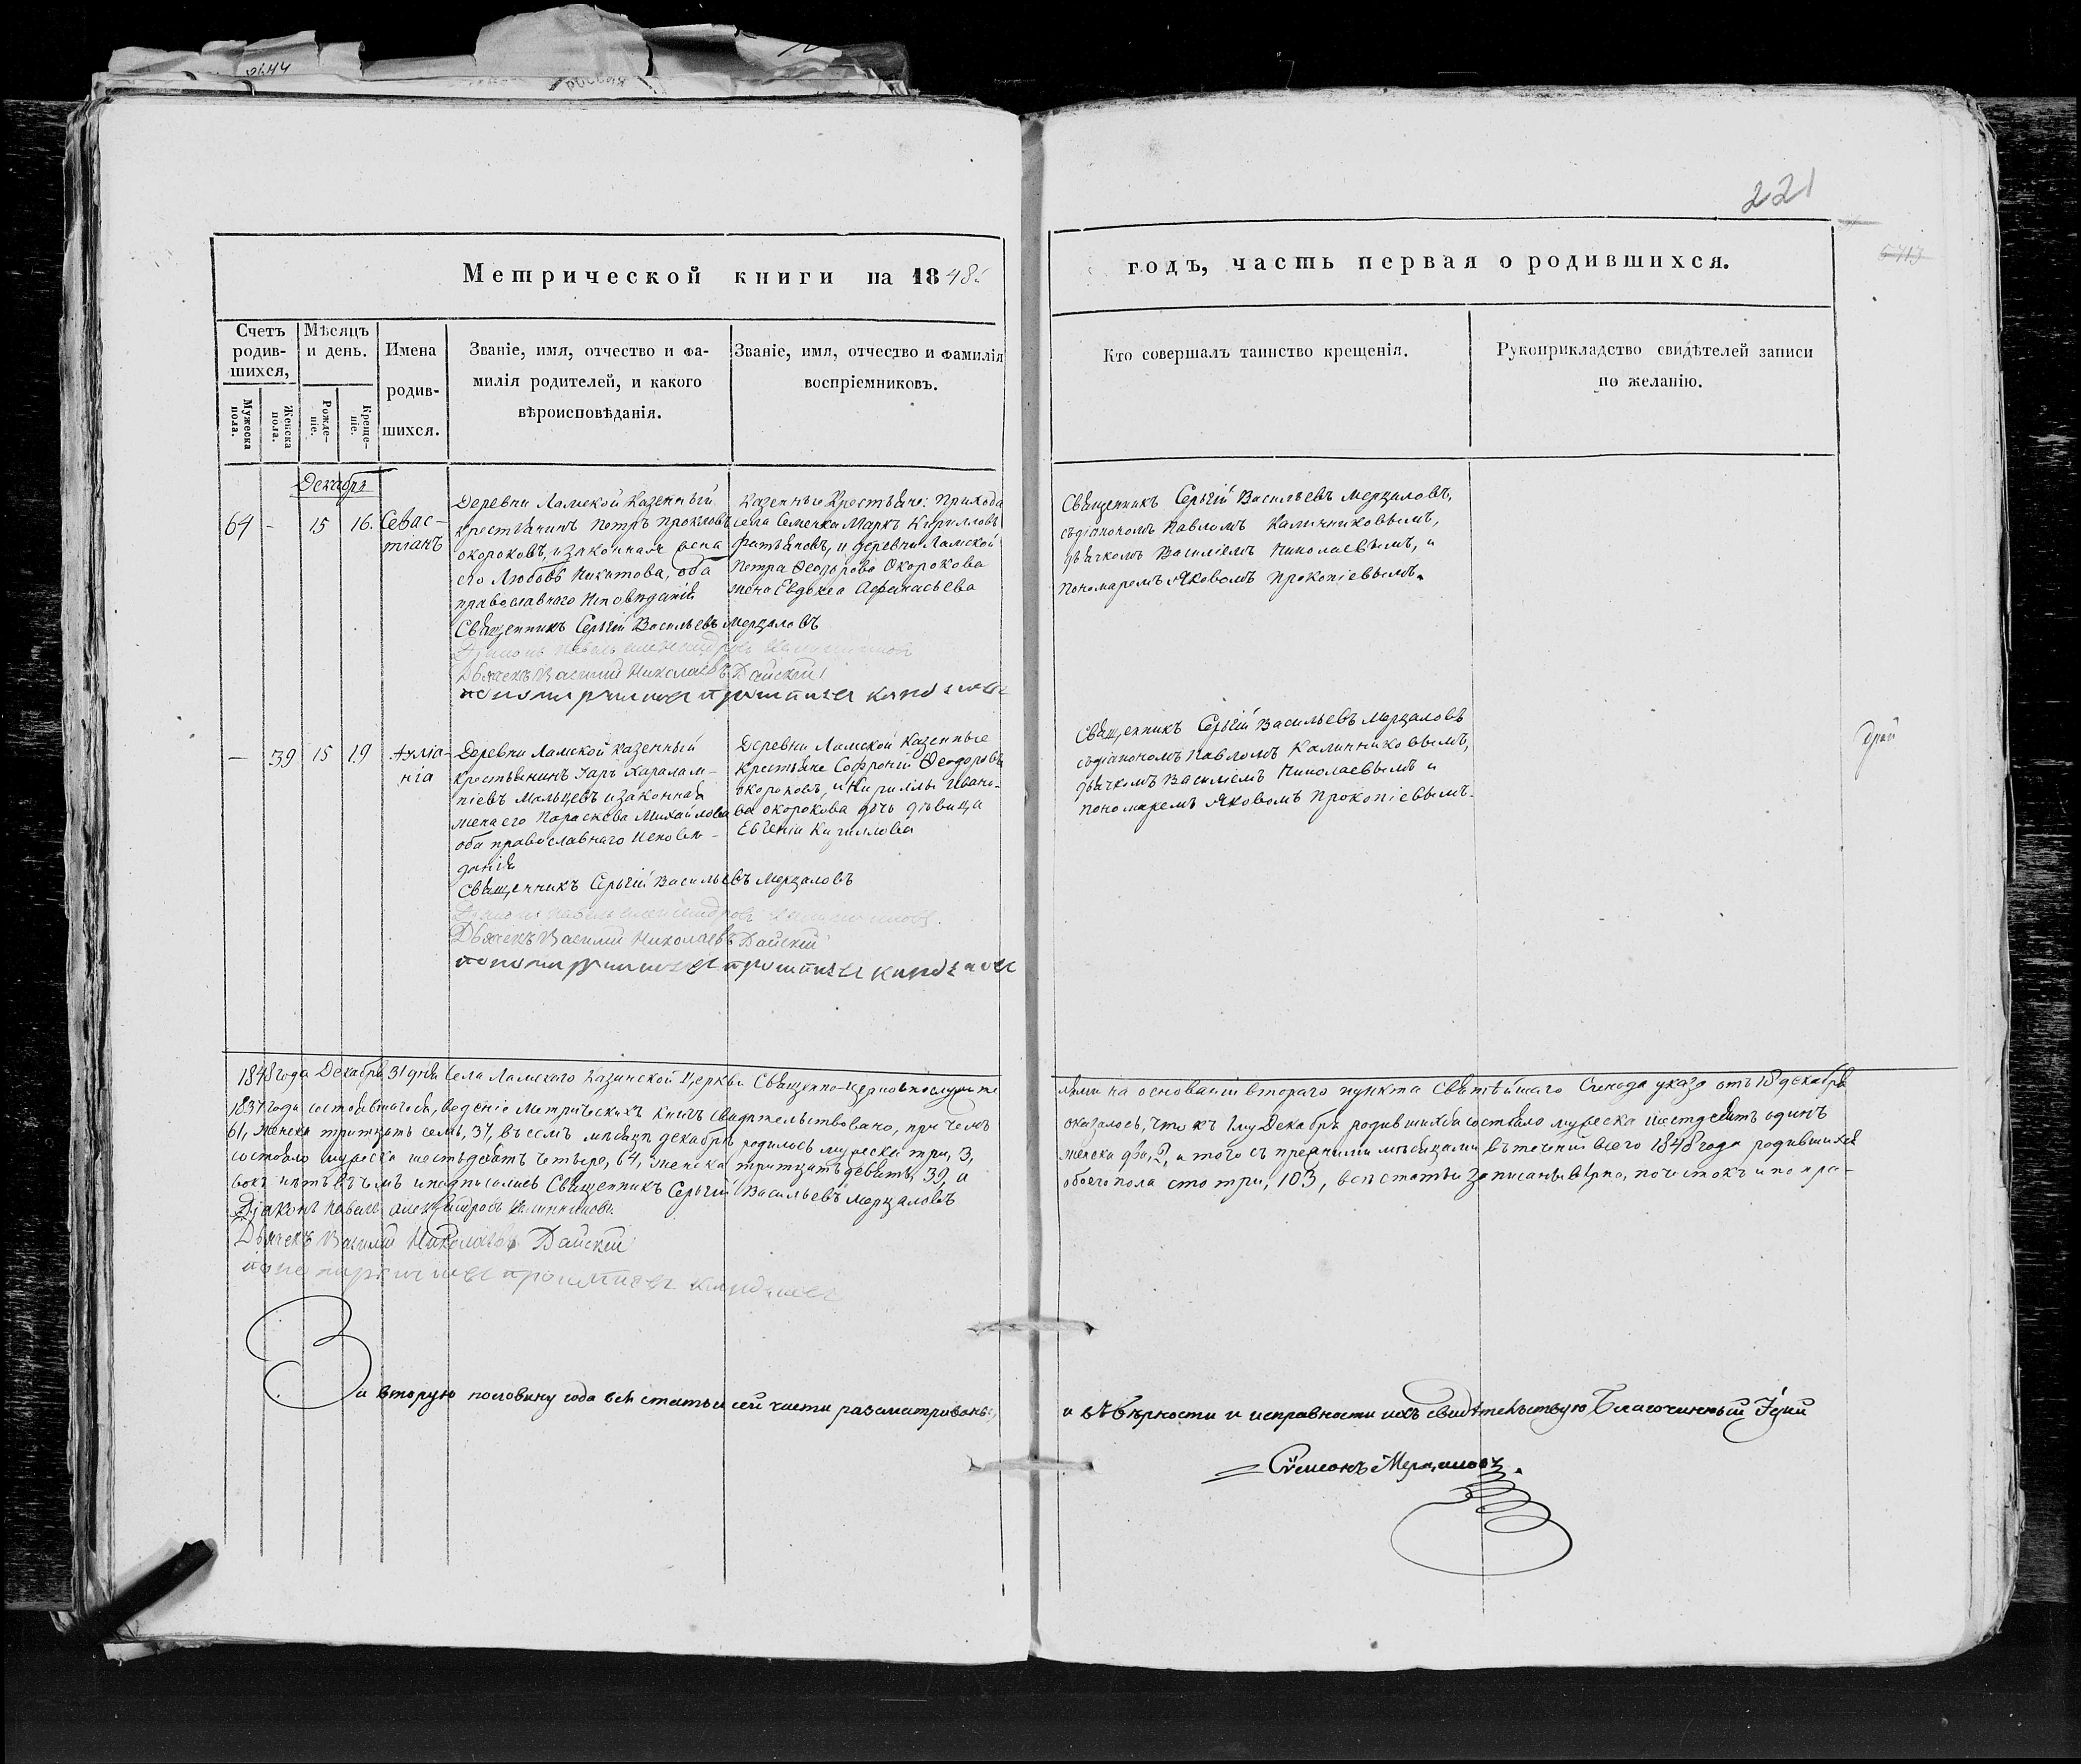 221
Метрической книги на 1848.
годъ, часть первая о родившихся.
Счетъ родив-шихся,
Мужеска пола.
Женска пола.
Мѣсяцъ и день.
Рожде-ніе.
Креще-ніе.
Имена
родив-
шихся.
Званіе, имя, отчество и фа-
милія родителей, и какого
вѣроисповѣданія.
Званіе, имя, отчество и фамилія
воспріемниковъ.
Кто совершалъ таинство крещенія.
Рукоприкладство свидѣтелей записи
по желанію.
Декабрь
64 - 15 16.
Севас-
тіанъ
Деревни Ламской Казенный
крестьянинъ Петръ
Окороковъ, и законная жена
его Любовь Никитова, оба
православнаго Исповѣданія
Казенные Крестьяне: Прихода
села Семенка Маркъ Кирилловъ
Фатьяновъ, и деревни Ламской
Петра Ѳеодорова Окорокова
жена Евдокея Афанасьева
Священникъ Сергій Васильевъ Мерцаловъ
Діаконъ Павелъ Александровъ
Дьячекъ Василій Николаевъ Дайскій
Священникъ Сергій Васильевъ Мерцаловъ,
съ діакономъ Павломъ Калинниковымъ,
дьячкомъ Василіемъ Николаевымъ, и
пономаремъ Яковомъ Прокопіевымъ.
— 39 15 19
Деревни Ламской казенный
крестьянинъ Харалам-
піевъ Мальцевъ и законная
жена его Параскева Михайлова
оба православнаго Исповѣ-
данія
Деревни Ламской Казенные
крестьяне Софроній Ѳеодоровъ
Окороковъ, и Кириллы Ивано-
ва Окорокова дочь дѣвица
Евгенія Кириллова
Священникъ Сергій Васильевъ Мерцаловъ
Діаконъ Павелъ Александровъ
Дьячекъ Василій Николаевъ Дайскій
Священникъ Сергій Васильевъ Мерцаловъ
съ діакономъ Павломъ Калинниковымъ,
дьячкомъ Василіемъ Николаевымъ и
пономаремъ Яковомъ Прокопіевымъ.
1848 года Декабря 31 дня Села Ламскаго Казанской Церкви Священно-церковнослужите
лями на основаніи втораго пункта Святѣйшаго Синода указа отъ 18 декабря
1837 года состоявшагося, веденіе Метрическихъ книгъ свидѣтельствовано, при чемъ
оказалось, что къ 1му Декабря родившихся состояло мужеска шестдесятъ одинъ
61, женска тритцать семь, 37, въ семъ мѣсяцѣ декабрѣ родилось мужеска три, 3,
женска два, 2, а того съ прежними мѣсяцами въ теченіи всего 1848 года родившихся
состояло мужеска шестьдесятъ четыре, 64, женска тритцать девять, 39, а
обоего пола сто три, 103, всѣ статьи записаны вѣрно, почистокъ и попра-
вокъ нѣтъ въ чемъ и подписались Священникъ Сергій Васильевъ Мерцаловъ
Діаконъ Павелъ Александровъ Калинниковъ
Дьячекъ Василій Николаевъ Дайскій
За вторую половину года всѣ статьи сей части разсматриваны,
и въ вѣрности и исправности ихъ свидѣтельствую Благочинный Іерей
Сѵмеонъ Мерцаловъ.